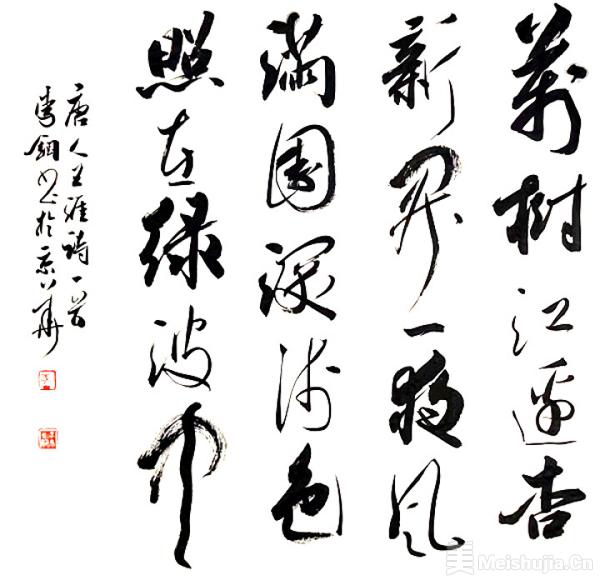 萬樹江邊杏
新開一夜風
滿園深淺色
照在綠波中
唐人王涯詩一首
李書於京華
美 Meishujia.Cn